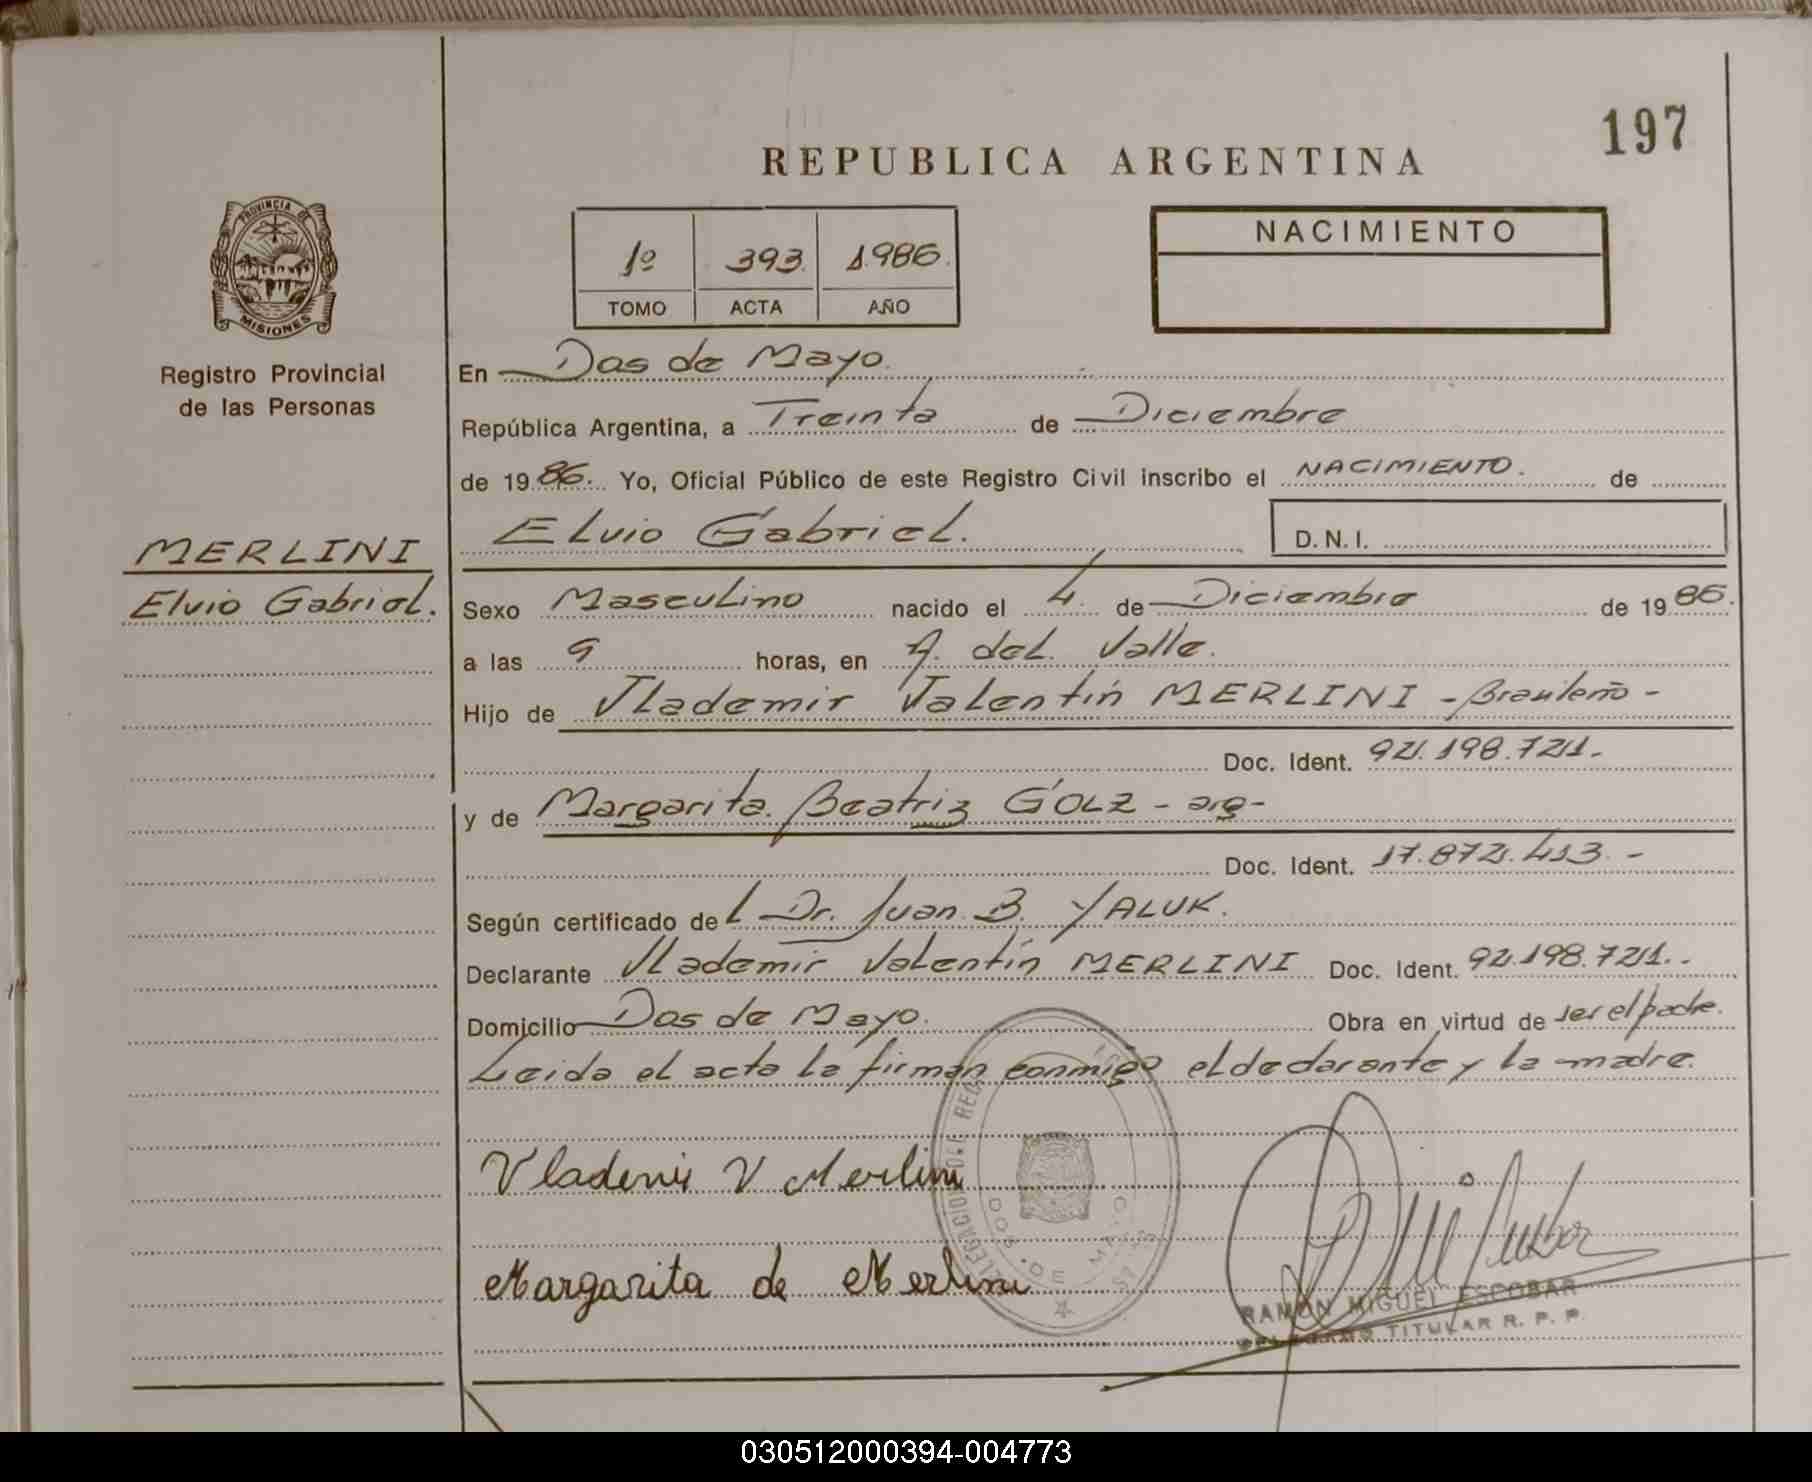 197
REPUBLICA ARGENTINA
PROVINCIA DE
MISIONES
Registro Provincial
de las Personas
1º 393. 1986.
TOMO ACTA AÑO
NACIMIENTO
En Dos de Mayo.
República Argentina, a Treinta de Diciembre
de 19 86. Yo, Oficial Público de este Registro Civil inscribo el NACIMIENTO. de
Elvio Gabriel.
D.N.I.
MERLINI
Elvio Gabriel.
Sexo Masculino nacido el 4. de Diciembre de 19 86.
a las 9 horas, en A. del. Valle.
Hijo de Vlademir Valentín MERLINI - Brasileño -
Doc. Ident. 92.198.721.-
y de Margarita. Beatriz GOLZ - arg-
Doc. Ident. 17.872.413.-
Según certificado del Dr. Juan B. YALUK.
Declarante Vlademir Valentín MERLINI Doc. Ident. 92.198.721.-
Domicilio Dos de Mayo. Obra en virtud de ser el padre.
Leida el acta la firman conmigo el declarante y la madre.
Vlademir V Merlini
Margarita de Merlini
DOS DE MAYO
RAMON MIGUEL ESCOBAR
TITULAR R. P. P.
030512000394-004773